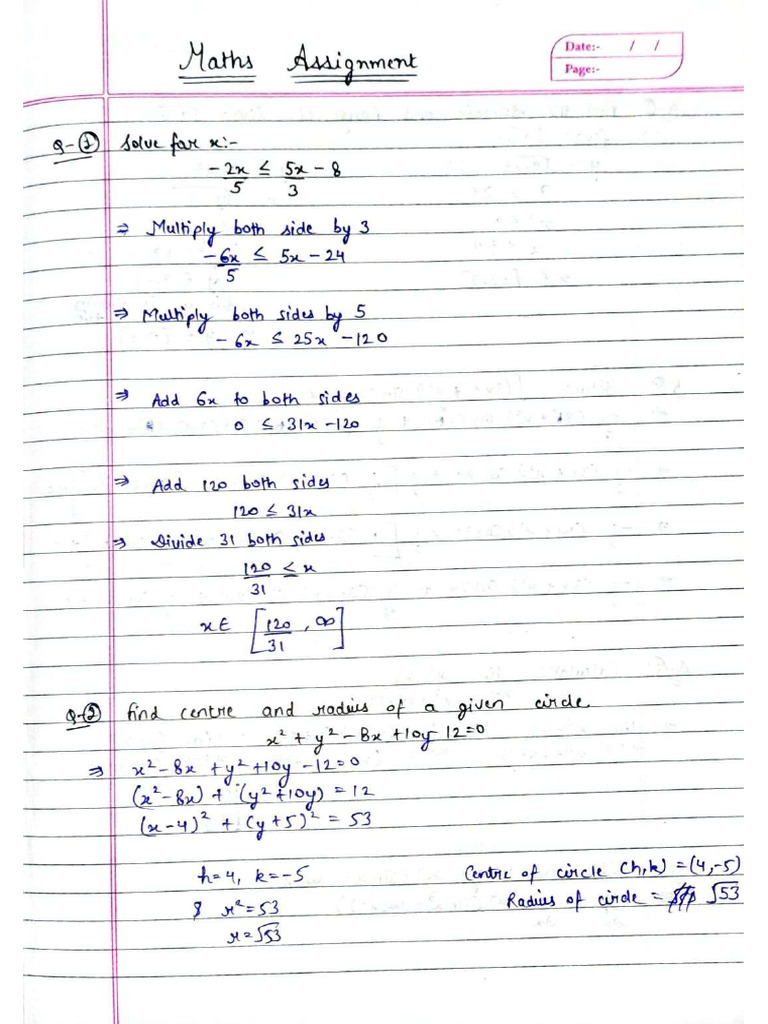 Maths Assignment
Date:- / /
Page:-
Q-① Solve for x:-
-2x/5 ≤ 5x/3 - 8
⇒ Multiply both side by 3
-6x/5 ≤ 5x - 24
⇒ Multiply both sides by 5
- 6x ≤ 25x - 120
⇒ Add 6x to both sides
0 ≤ 31x - 120
⇒ Add 120 both sides
120 ≤ 31x
⇒ Divide 31 both sides
120/31 ≤ x
x ∈ [120/31, ∞]
Q-② find centre and radius of a given circle
x² + y² - 8x + 10y 12 = 0
⇒ x² - 8x + y² + 10y - 12 = 0
(x² - 8x) + (y² + 10y) = 12
(x - 4)² + (y + 5)² = 53
h = 4, k = -5 Centre of circle (h,k) = (4,-5)
r² = 53 Radius of circle = √53
r = √53